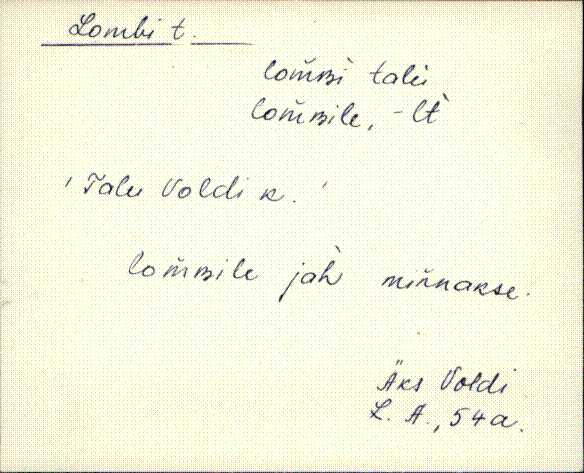 Lombi t.
lom̆ʙì talù
lom̆ʙile, -lt̀
'Talu Voldi k.'
lom̆ʙile jàh miñnakse.
Äks Voldi
L. A., 54a.